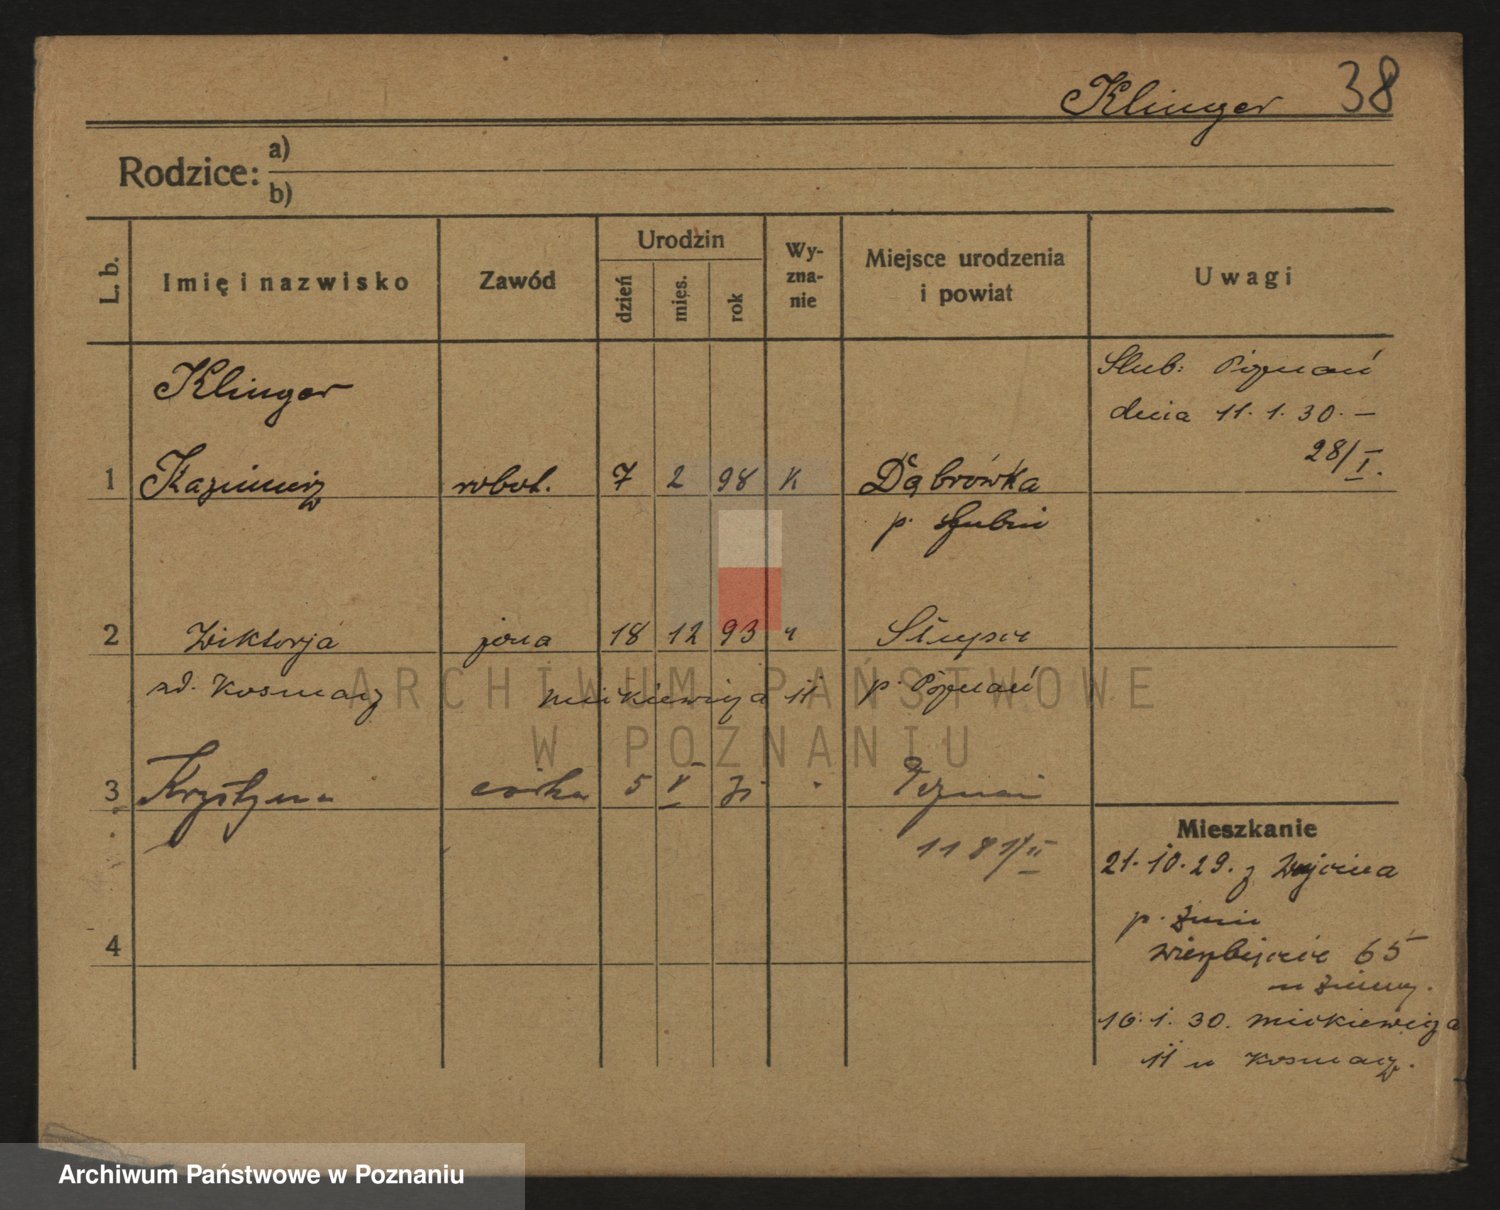 Klinger 38
Rodzice: a)
b)
L. b.
Imię i nazwisko
Zawód
Urodzin
dzień
mies.
rok
Wy-
zna-
nie
Miejsce urodzenia
i powiat
Uwagi
Klinger
Ślub: Poznań
dnia 11. 1. 30. —
28/I.
1 Kazimierz robot. 7 2 98 K Dąbrówka
p. Szubin
2 Wiktorja żona 18 12 93 " Słupia
zd. Kosmacz Mickiewicza 11 p. Poznań
ARCHIWUM PAŃSTWOWE
W POZNANIU
3 Krystyna córka 5 V 31 " Poznań
1181/II
4
Mieszkanie
21. 10. 29. z Wójcina
p. Żnin
Wierzbięcice 65
u Zimny.
16. 1. 30. Mickiewicza
11 u Kosmacz.
Archiwum Państwowe w Poznaniu